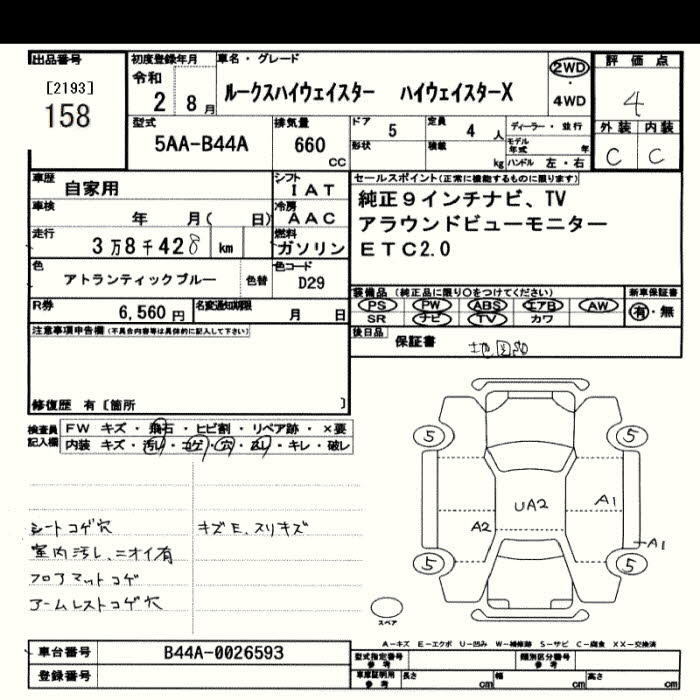 出品番号
[2193]
158
初度登録年月
令和
2 8月
車名・グレード
ルークスハイウェイスター ハイウェイスターX
2WD
・
4WD
評価点
4
外装 内装
C C
型式
5AA-B44A
排気量
660
cc
ドア
5
定員
4 人
ディーラー・並行
形状
積載
kg
モデル年式 年
ハンドル 左・右
車歴
自家用
シフト
IAT
車検
年 月( 日)
冷房
AAC
走行
3万8千428 km
燃料
ガソリン
色
アトランティックブルー
色替
色コード
D29
R券
6,560 円
名変通知期限
月 日
セールスポイント(正常に機能するものに限ります)
純正9インチナビ、TV
アラウンドビューモニター
ETC2.0
装備品 (純正品に限り○をつけてください)
PS PW ABS エアB AW
SR ナビ TV カワ
新車保証書
有・無
後日品
保証書
注意事項申告欄(不具合内容等は具体的に記入して下さい)
修復歴 有〔箇所 〕
検査員記入欄
FW キズ・飛石・ヒビ割・リペア跡・×要
内装 キズ・汚レ・コゲ・穴・スレ・キレ・破レ
シートコゲ穴
室内汚レ、ニオイ有
フロアマットコゲ
アームレストコゲ穴
キズE、スリキズ
5 5
UA2
A1
A2
A1
5 5
スペア
A-キズ E-エクボ U-凹み W-補修跡 S-サビ C-腐食 XX-交換済
車台番号
B44A-0026593
登録番号
型式指定番号
参考
類別区分番号
参考
車庫証明用
参考
長さ cm
幅 cm
高さ cm